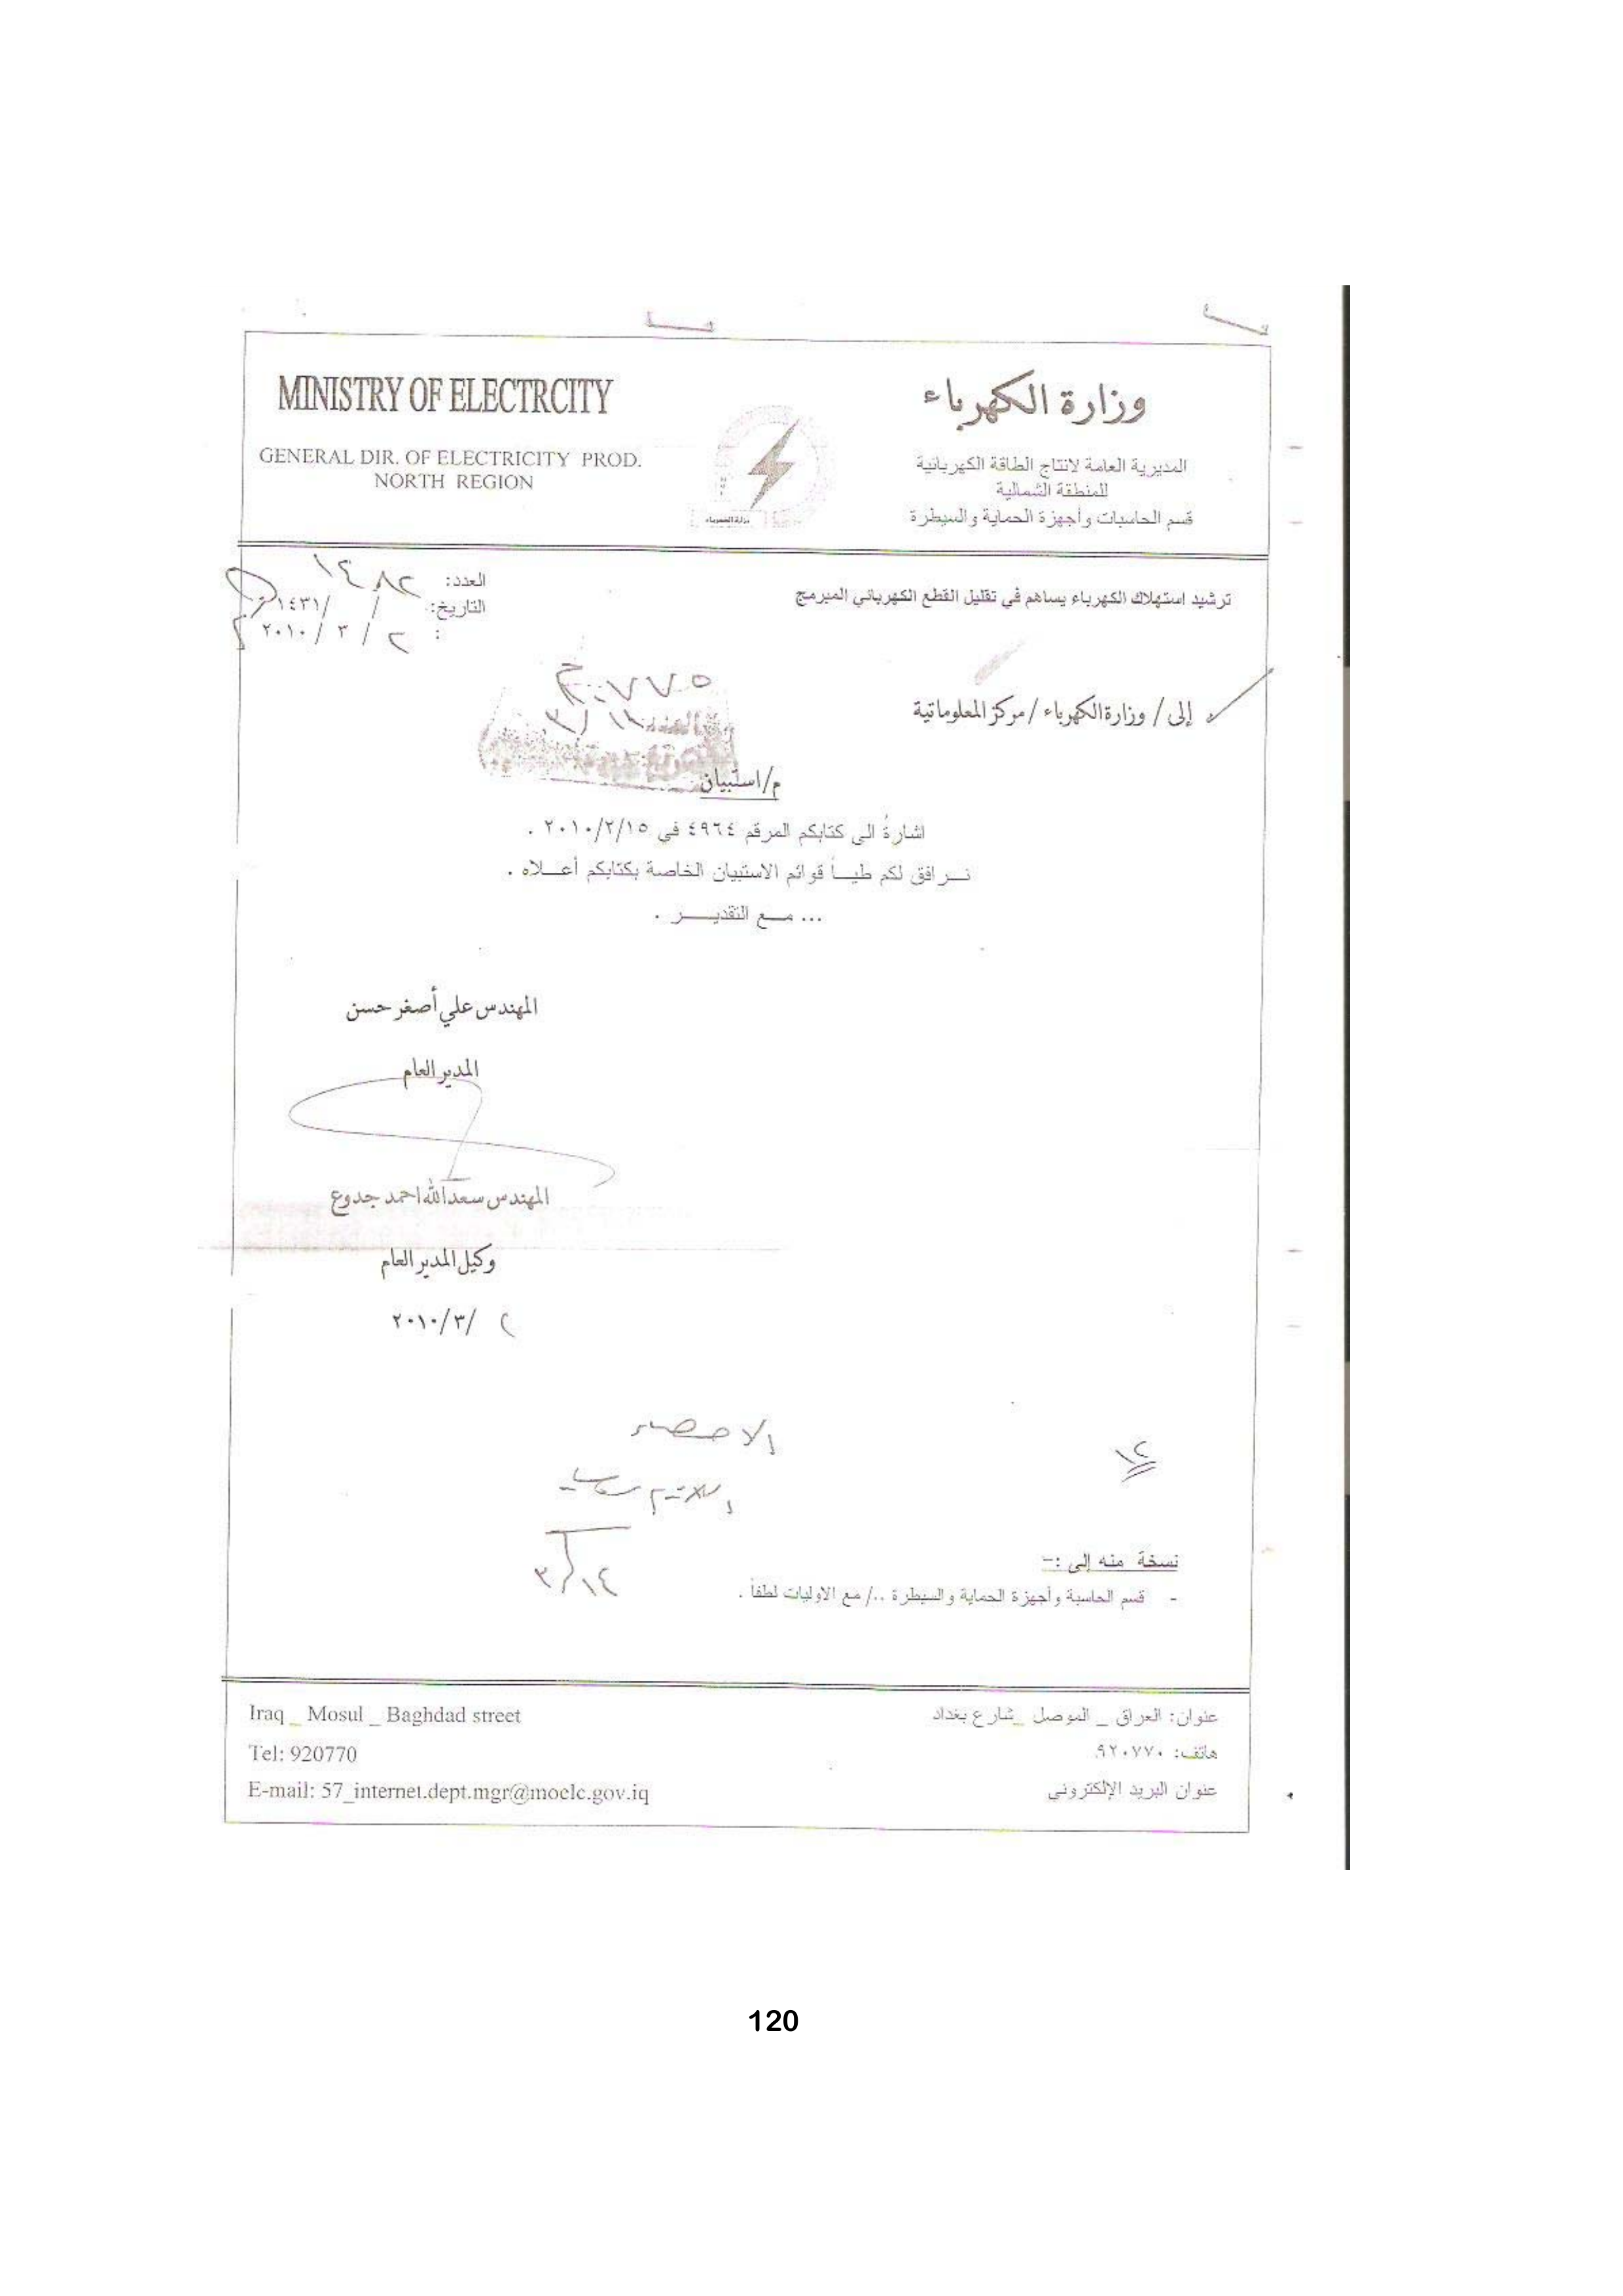 MINISTRY OF ELECTRCITY
GENERAL DIR. OF ELECTRICITY PROD.
NORTH REGION
وزارة الكهرباء
المديرية العامة لانتاج الطاقة الكهربائية
للمنطقة الشمالية
قسم الحاسبات وأجهزة الحماية والسيطرة
وزارة الكهرباء
العدد: ١٤٨٢
التاريخ: / /١٤٣١
: ٢ / ٣ / ٢٠١٠
ترشيد استهلاك الكهرباء يساهم في تقليل القطع الكهربائي المبرمج
إلى / وزارة الكهرباء / مركز المعلوماتية
العدد
م/استبيان
اشارةُ الى كتابكم المرقم ٤٩٦٤ في ٢٠١٠/٢/١٥ .
نـــرافق لكم طيـــاً قوائم الاستبيان الخاصة بكتابكم أعـــلاه .
... مـــع التقديـــــر .
المهندس علي أصغر حسن
المدير العام
المهندس سعدالله احمد جدوع
وكيل المدير العام
٢ /٢٠١٠/٣
١٢
٣/١٤
نسخة منه إلى :-
- قسم الحاسبة وأجهزة الحماية والسيطرة ../ مع الاوليات لطفاً .
Iraq _ Mosul _ Baghdad street
Tel: 920770
E-mail: 57_internet.dept.mgr@moelc.gov.iq
عنوان: العراق _ الموصل _شارع بغداد
هاتف: ٩٢٠٧٧٠
عنوان البريد الإلكتروني
120